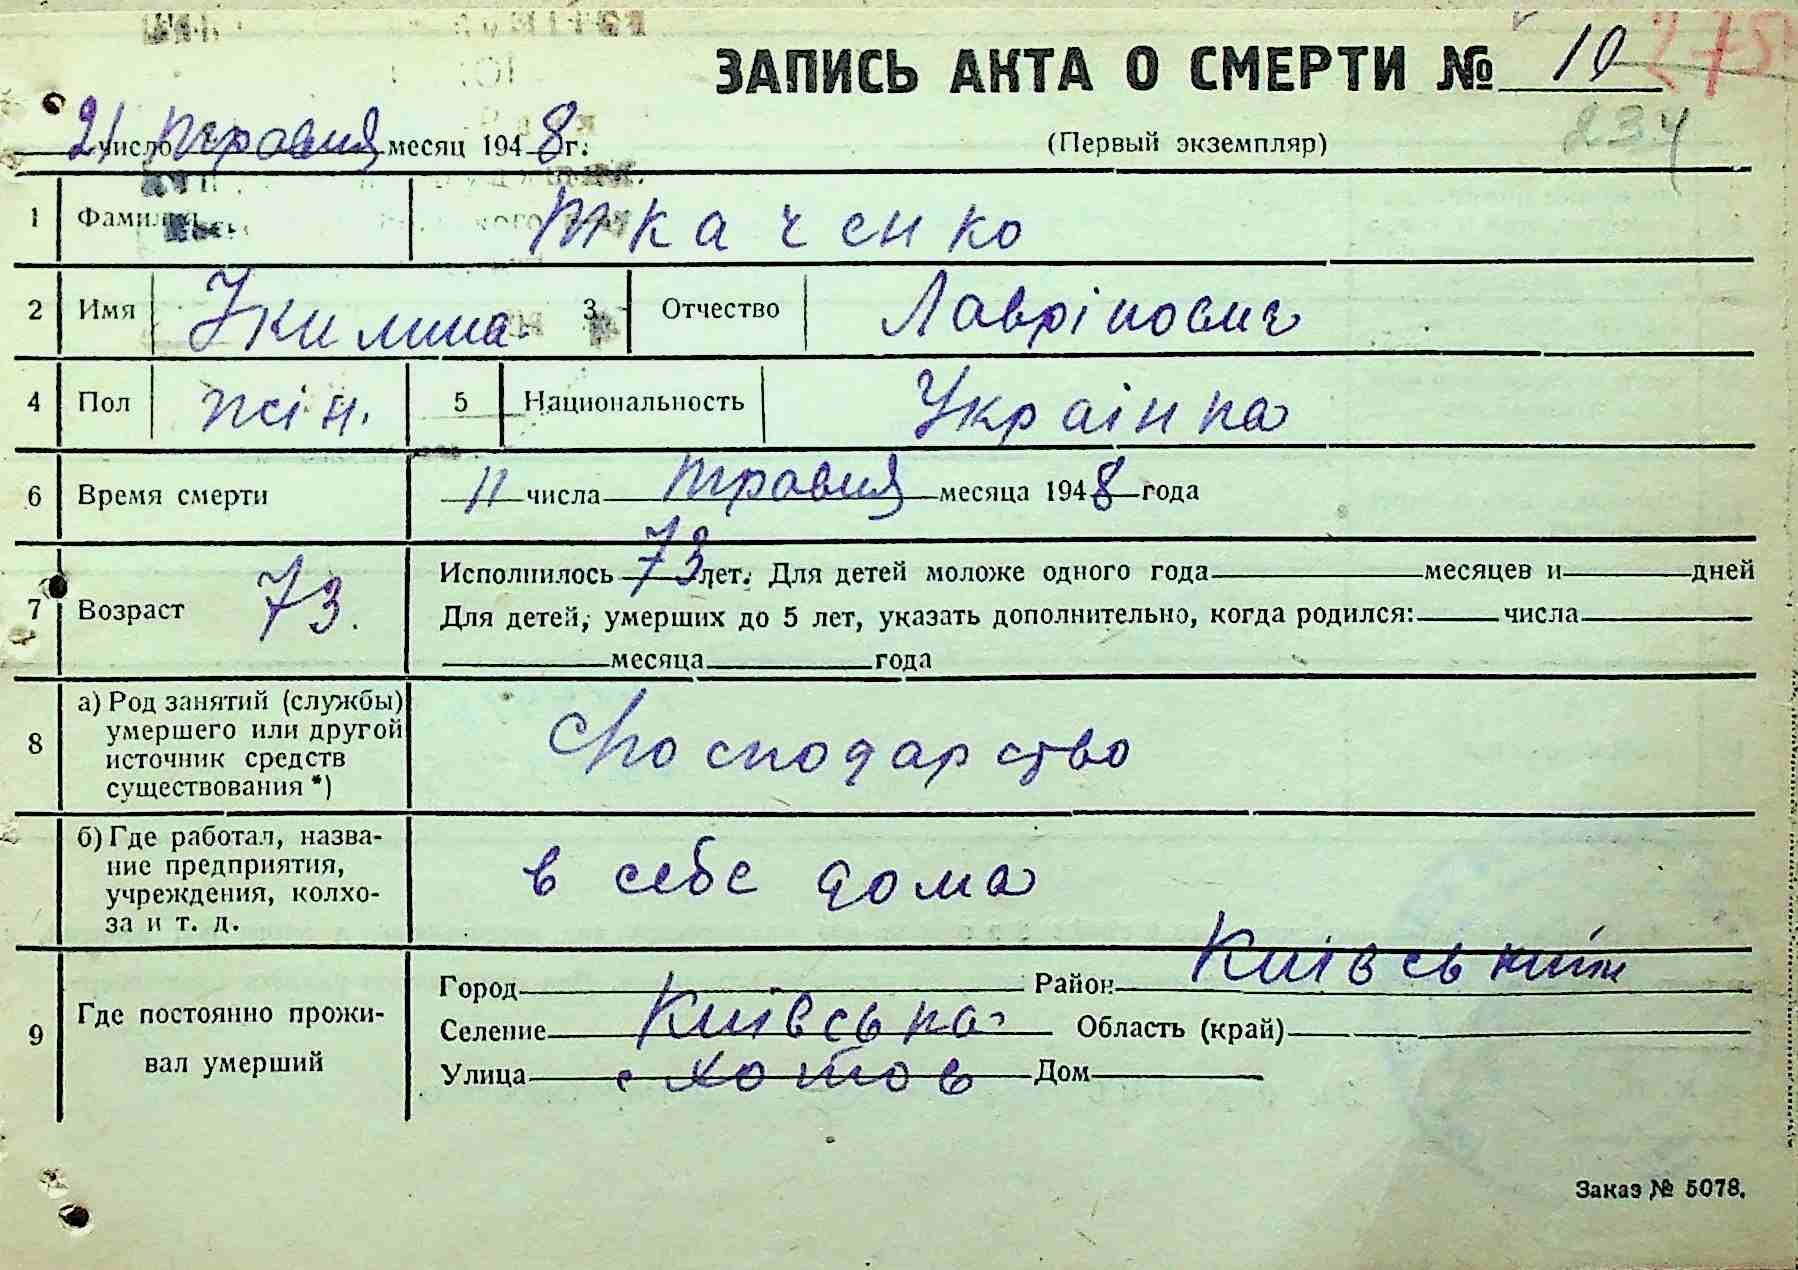 ЗАПИСЬ АКТА О СМЕРТИ № 10 275
21 число травня месяц 1948 г. (Первый экземпляр) 234
1 Фамилия Ткаченко
2 Имя Укилина. 3 Отчество Лаврінович
4 Пол жін. 5 Национальность Українка
6 Время смерти 11 числа травня месяца 1948 года
7 Возраст 73. Исполнилось 73 лет. Для детей моложе одного года месяцев и дней
Для детей, умерших до 5 лет, указать дополнительно, когда родился: числа
месяца года
8 а) Род занятий (службы)
умершего или другой
источник средств
существования *)
Господарство
б) Где работал, назва-
ние предприятия,
учреждения, колхо-
за и т. д.
в себе дома
9 Где постоянно прожи-
вал умерший
Город Район Київський
Селение Київська Область (край)
Улица с Хотов Дом
Заказ № 5078.